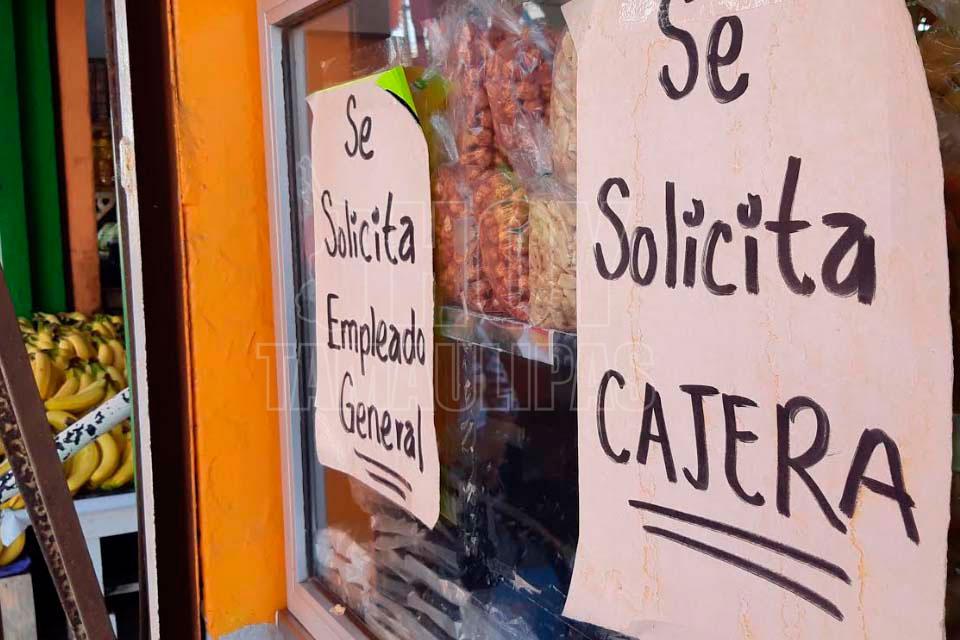 Se
Solicita
Empleado
General
Se
Solicita
CAJERA
TAMAULIPAS